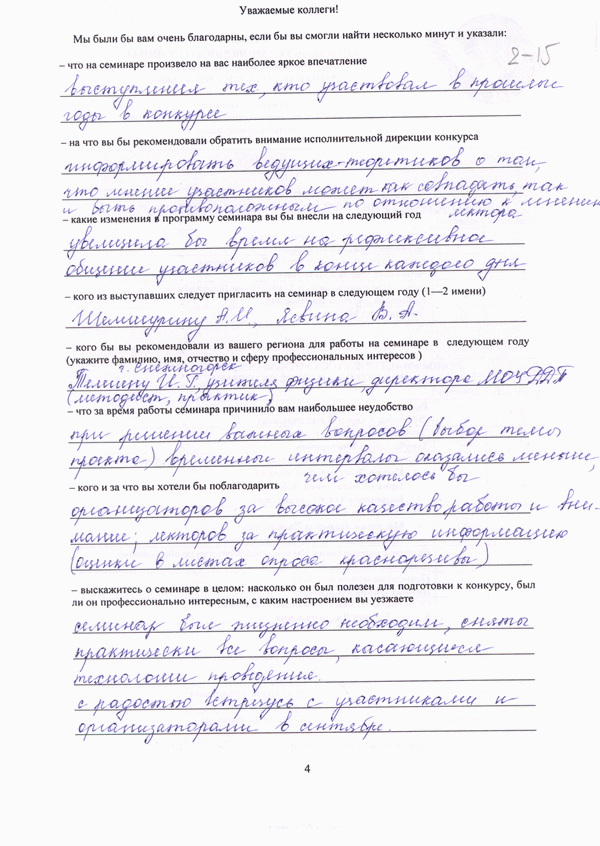 Уважаемые коллеги!
Мы были бы вам очень благодарны, если бы вы смогли найти несколько минут и указали:
2-15
– что на семинаре произвело на вас наиболее яркое впечатление
выступления тех, кто участвовал в прошлые
годы в конкурсе
– на что вы бы рекомендовали обратить внимание исполнительной дирекции конкурса
информировать ведущих-теоретиков о том,
что мнение участников может как совпадать, так
и быть противоположным по отношению к мнению
лектора
– какие изменения в программу семинара вы бы внесли на следующий год
увеличила бы время на рефлексивное
общение участников в конце каждого дня
– кого из выступавших следует пригласить на семинар в следующем году (1—2 имени)
Шемшурину А.И., Ясвина В.А.
– кого бы вы рекомендовали из вашего региона для работы на семинаре в следующем году
(укажите фамилию, имя, отчество и сферу профессиональных интересов )
г. Снежногорск
И.Г., учителя физики, директора МОЦДДТ
(методист, практик)
– что за время работы семинара причинило вам наибольшее неудобство
при решении важных вопросов (выбор темы
проекта) временные интервалы оказались меньше,
чем хотелось бы
– кого и за что вы хотели бы поблагодарить
организаторов за высокое качество работы и вни-
мание; лекторов за практическую информацию
(оценки в листах опроса красноречивы)
– выскажитесь о семинаре в целом: насколько он был полезен для подготовки к конкурсу, был
ли он профессионально интересным, с каким настроением вы уезжаете
семинар был жизненно необходим, сняты
практически все вопросы, касающиеся
технологии проведения.
с радостью встречусь с участниками и
организаторами в сентябре.
4